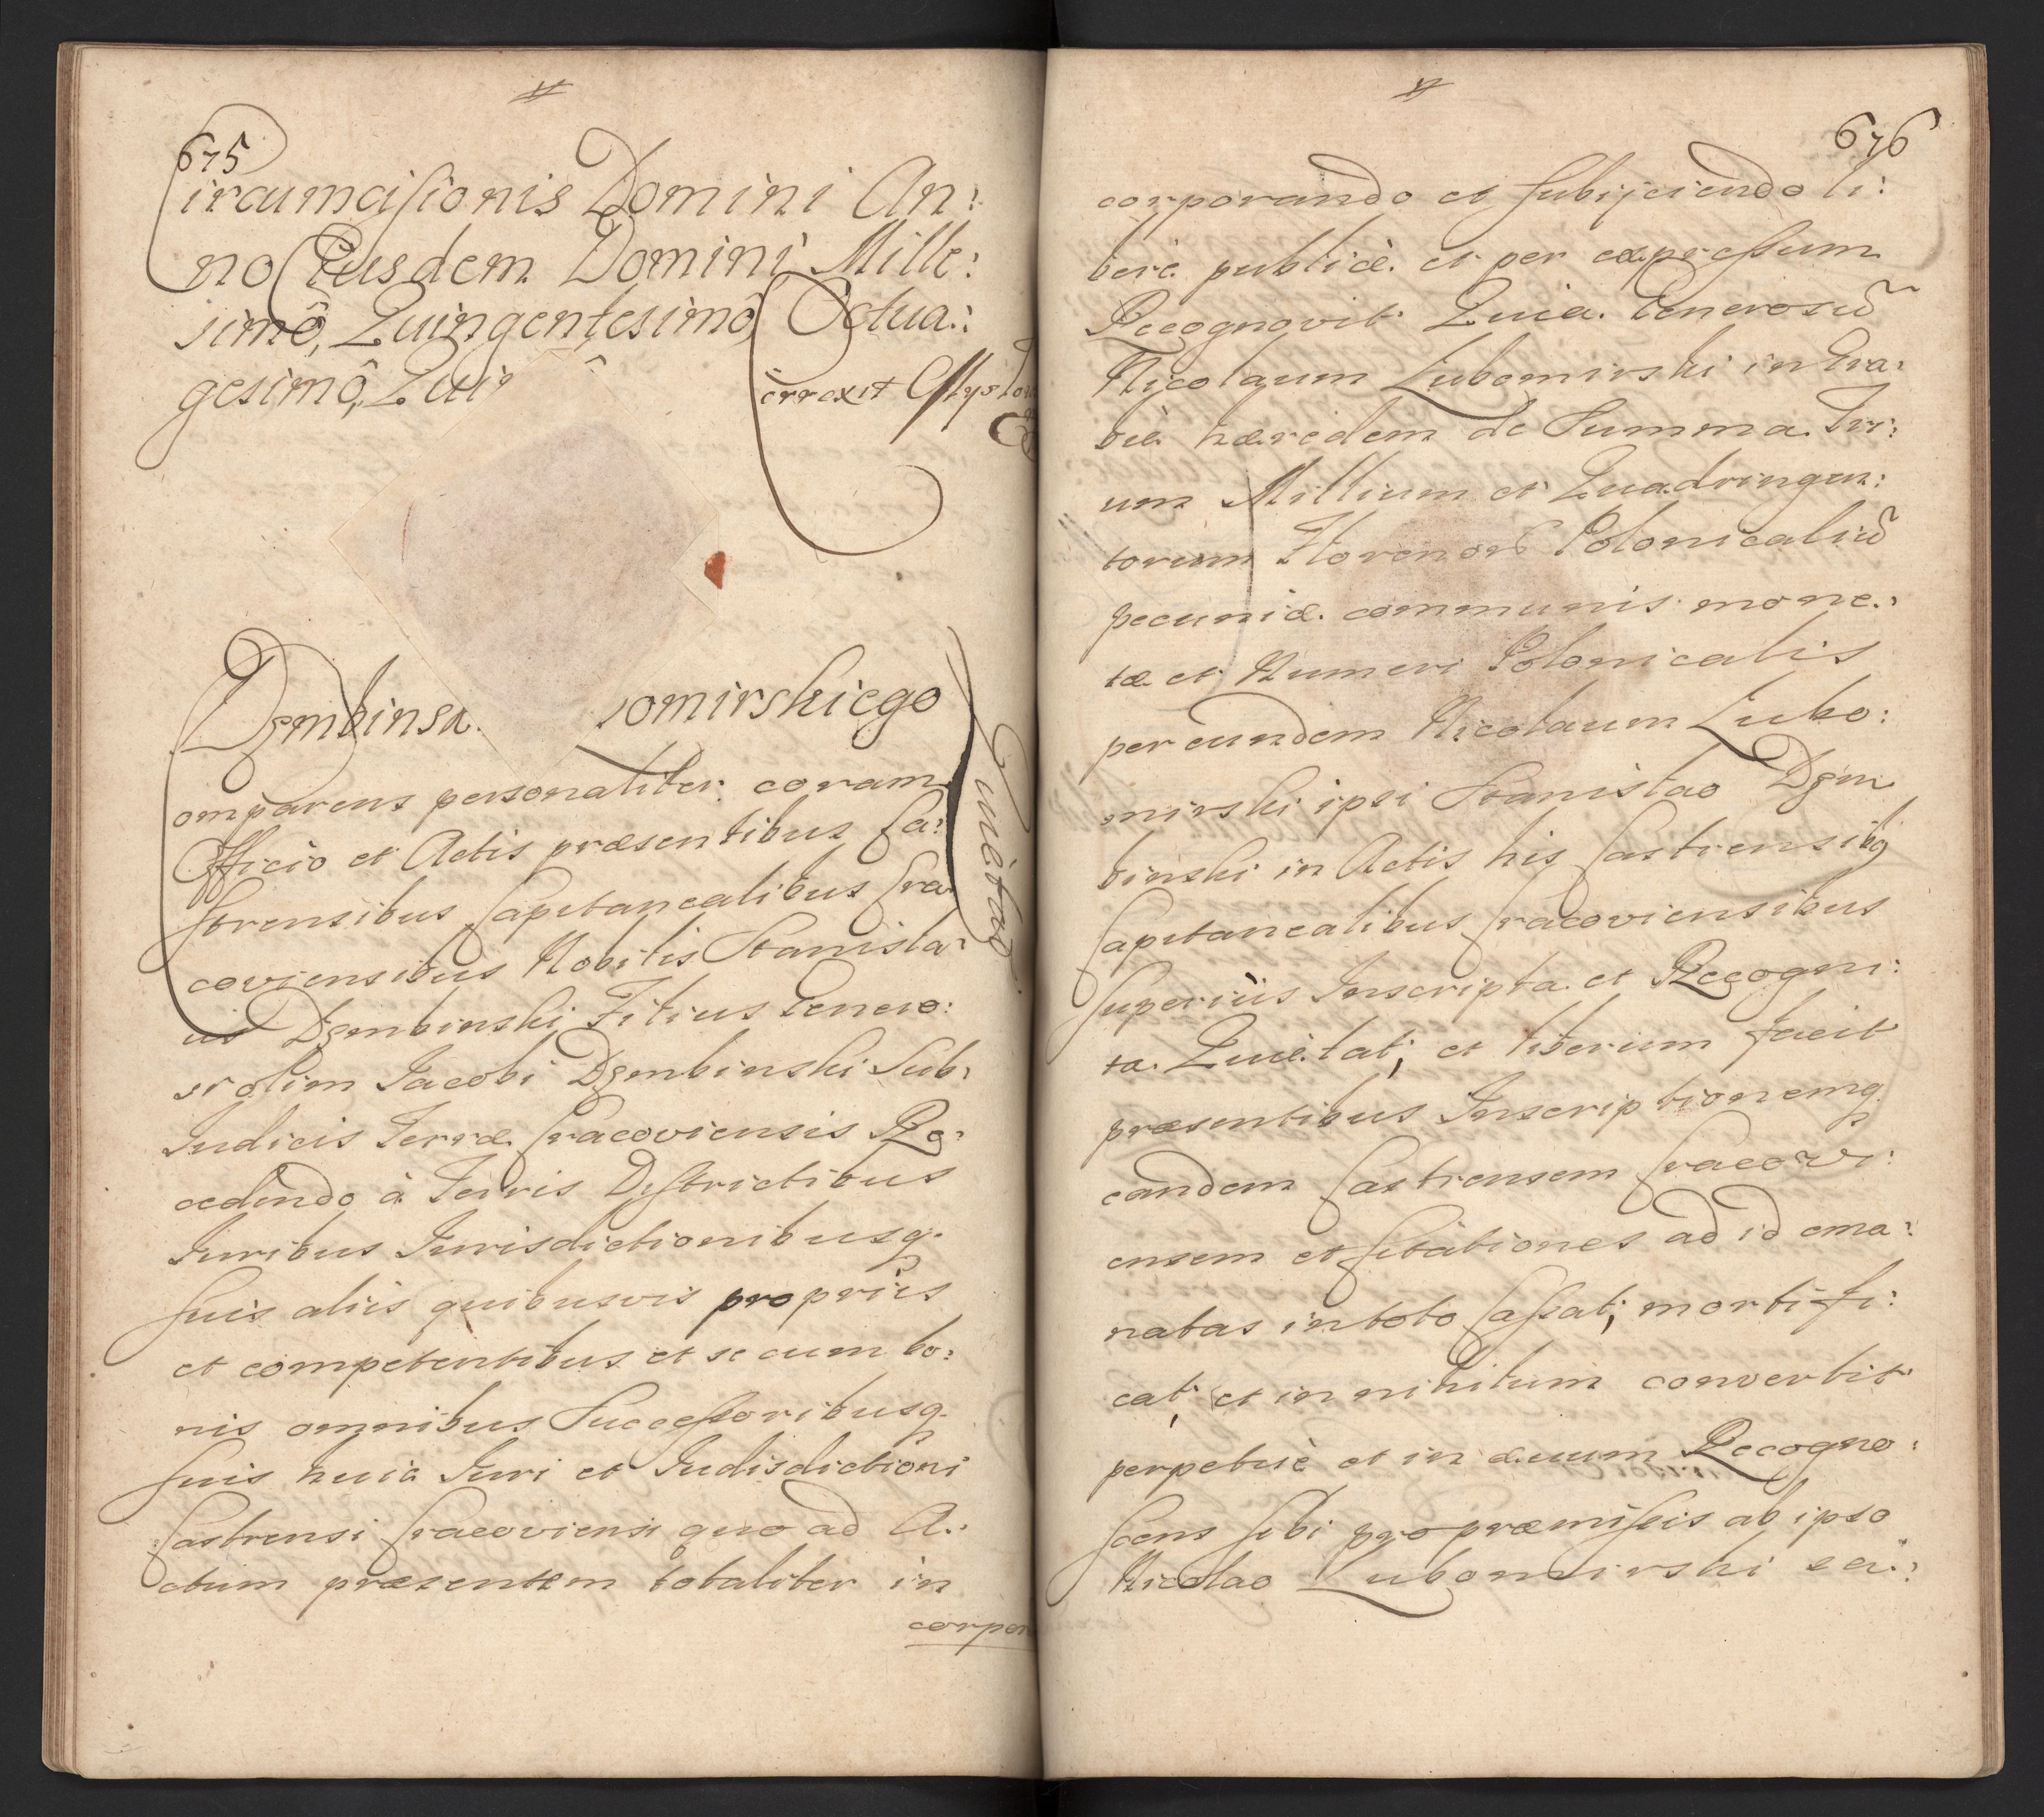 675
Circumcisionis Domini An:
no Eiusdem Domini Mille:
simô, Quingentesimô Octua:
gesimô, Quin
Correxit
Dzembinsk
omirskiego
Quietat
Comparens personaliter coram
Officio et Actis præsentibus Ca:
strensibus Capitanealibus Cra:
coviensibus Nobilis Stanisla:
us Dzembinski Filius Genero:
si olim Jacobi Dzembinski Sub:
Judicis Terræ Cracoviensis Re:
cedendo à Terris Districtibus
Juribus Jurisdictionibusq.
suis aliis quibusvis propriis
et competentibus et se cum bo:
nis omnibus Successoribusq.
suis huic Juri et Judisdictioni
Castrensi Cracoviensi quo ad A:
ctum præsentem totaliter in
corpor
676
corporando et subijciendo li:
berè publicè et per expressum
Recognovit Quia Generosũ
Nicolaum Lubomirski in Gra:
bie hæredem de Summa Tri:
um Millium et Quadringen:
torum Florenor Polonicaliũ
pecuniæ communis mone:
tæ et Numeri Polonicalis
per eundem Nicolaum Lubo:
mirski ipsi Stanislao Dzem
binski in Actis his Castrensibq
Capitanealibus Cracoviensibus
superiùs Inscripta et Recogni:
ta Quietat, et liberum facit
præsentibus Inscriptionemq.
eandem Castrensem Cracovi:
ensem et Citationes ad id ema:
natas in toto Cassat, mortifi:
cat, et in nihilum convertit
perpetuè et in ævum Recogno:
scens sibi pro præmissis ab ipso
Nicolao Lubomirski ea: